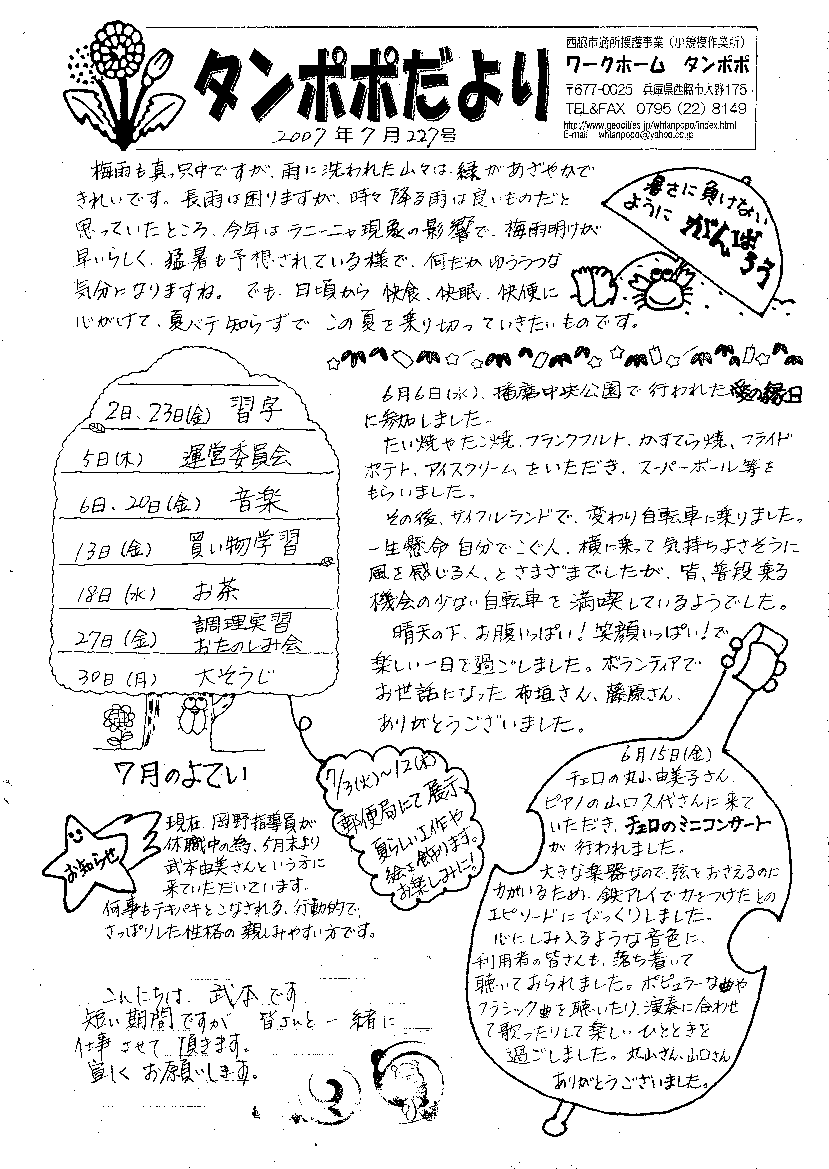 タンポポだより
2007年7月227号
西脇市通所援護事業(小規模作業所)
ワークホーム タンポポ
〒677-0025 兵庫県西脇市大野175
TEL&FAX 0795(22)8149
http://www.geocities.jp/whtanpopo/index.html
E-mail whtanpopo@yahoo.co.jp
梅雨も真っ只中ですが、雨に洗われた山々は緑があざやかで
きれいです。長雨は困りますが、時々降る雨は良いものだと
思っていたところ、今年はラニーニャ現象の影響で、梅雨明けが
早いらしく、猛暑も予想されている様で、何だかゆううつな
気分になりますね。でも、日頃から快食、快眠、快便に
心がけて、夏バテ知らずでこの夏を乗り切っていきたいものです。
暑さに負けない
ように がんばろう
2日、23日(金) 習字
5日(木) 運営委員会
6日、20日(金) 音楽
13日(金) 買い物学習
18日(水) お茶
27日(金) 調理実習
おたのしみ会
30日(月) 大そうじ
7月のよてい
6月6日(水)、播磨中央公園で行われた愛の縁日
に参加しました。
たい焼やたこ焼、フランクフルト、かすてら焼、フライド
ポテト、アイスクリームをいただき、スーパーボール等を
もらいました。
その後、サイクルランドで、変わり自転車に乗りました。
一生懸命自分でこぐ人、横に乗って気持ちよさそうに
風を感じる人、とさまざまでしたが、皆、普段乗る
機会の少ない自転車を満喫しているようでした。
晴天の下、お腹いっぱい!笑顔いっぱい!で
楽しい一日を過ごしました。ボランティアで
お世話になった布垣さん、藤原さん、
ありがとうございました。
7/3(火)~12(木)
郵便局にて展示
夏らしい工作や
絵を飾ります。
お楽しみに!
お知らせ
現在、岡野指導員が
休職中の為、5月末より
武本由美さんという方に
来ていただいています。
何事もテキパキとこなされる、行動的で、
さっぱりした性格の親しみやすい方です。
こんにちは、武本です
短い期間ですが 皆さんと一緒に
仕事させて頂きます。
宜しくお願いします。
6月15日(金)
チェロの丸山由美子さん、
ピアノの山口久代さんに来て
いただき、チェロのミニコンサート
が行われました。
大きな楽器なので、弦をおさえるのに
力がいるため、鉄アレイで力をつけたとの
エピソードにびっくりしました。
心にしみ入るような音色に、
利用者の皆さんも、落ち着いて
聴いておられました。ポピュラーな曲や
クラシック曲を聴いたり、演奏に合わせ
て歌ったりして楽しいひとときを
過ごしました。丸山さん、山口さん
ありがとうございました。